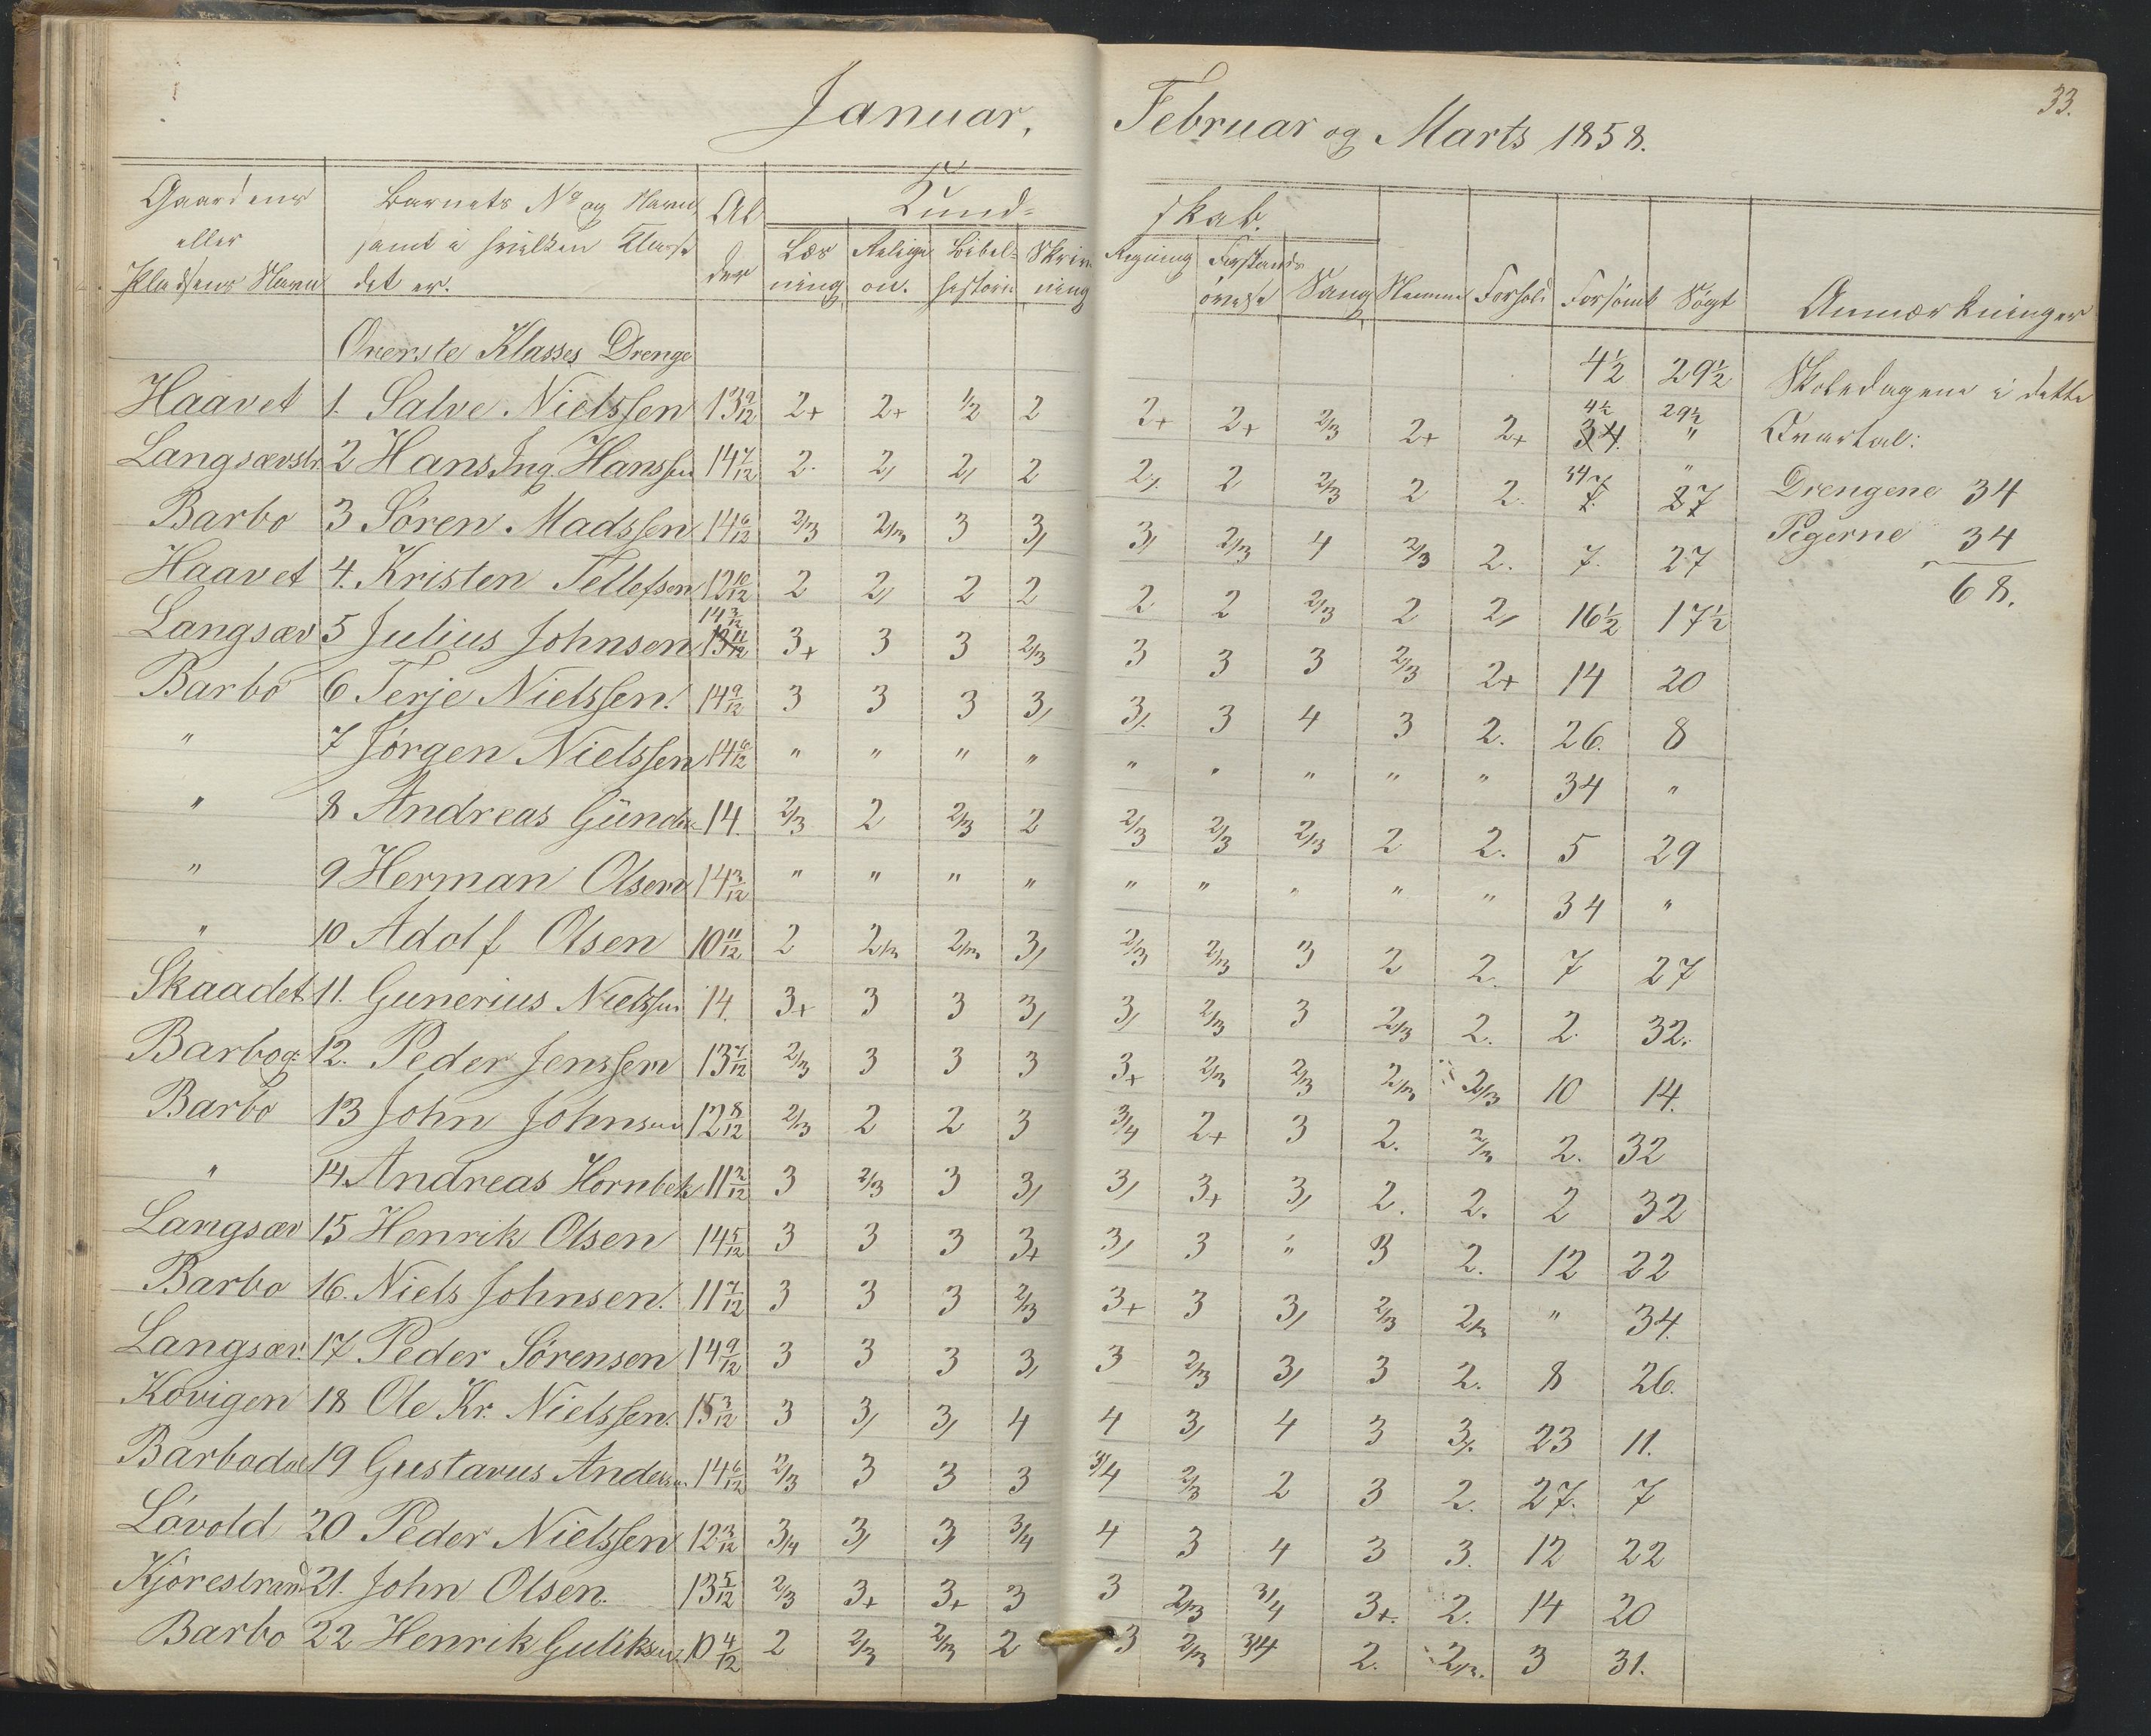 Januar, Februar og Marts 1858. 33.
Gaardens eller Pladsens Navn | Barnets No og Navn samt i hvilken Klasse det er. | Alder | Kundskab. | Læsning | Religion. | Bibelhistorie | Skrivning | Regning | Forstandsøvelse | Sang | Nemme | Forhold | Forsömt | Sögt | Anmærkninger
Överste Klasses Drenge | 4½ | 29½ | Skoledagene i dette
Haavet 1. Salve Nielssen 13 9/12 2+ 2+ 1/2 2 2+ 2+ 2/3 2+ 2+ 4½ 29½ Qvartal:
Langsævstr. 2 Hans Ing. Hanssen 14 7/12 2. 2, 2, 2 2, 2 2/3 2 2. 34 " Drengene 34
Barbo 3 Sören Madssen 14 6/12 2/3 2/3 3 3, 3, 2/3 4 2/3 2. 7. 27 Pigerne 34
Haavet 4. Kristen Tellefsen 12 10/12 2 2, 2 2 2 2 2/3 2 2, 16½ 17½ 68.
Langsæv 5 Julius Johnsen 14 3/12 3+ 3 3 2/3 3 3 3 2/3 2+ 14 20
Barbo 6 Terje Nielssen. 14 9/12 3 3 3 3, 3, 3 4 3 2. 26. 8
" 7 Jörgen Nielssen 14 6/12 " " " " " " " " " 34 "
" 8 Andreas 14. 2/3 2 2/3 2 2/3 2/3 2/3 2 2. 5 29
" 9 Herman Olsen 14 3/12 " " " " " " " " " 34 "
" 10 Adolf Olsen 10 11/12 2 2/3 2/3 3, 2/3 2/3 3 2 2. 7 27
Skaadet 11. Gunerius Nielssen 14. 3+ 3 3 3, 3, 2/3 3 2/3 2. 2. 32.
Barbog: 12. Peder Jenssen 13 7/12 2/3 3 3 3 3+ 2/3 2/3 2/3 2/3 10 14.
Barbo 13 John Johnsen 12 8/12 2/3 2 2 3 3/4 2+ 3 2. 2/3 2. 32
" 14. Andreas Hornbek 11 2/12 3 2/3 3 3, 3, 3+ 3, 2. 2. 2 32
Langsæv 15 Henrik Olsen 14 5/12 3 3 3 3+ 3, 3 " 3 2. 12 22
Barbo 16. Niels Johnsen. 11 7/12 3 3 3 2/3 3+ 3 3, 2/3 2/3 " 34.
Langsæv. 17 Peder Sörensen 14 9/12 3 3 3 3, 3 2/3 3, 3 2. 8 26.
Kovigen 18 Ole Kr. Nielssen. 15 3/12 3 3, 3, 4 4 3, 4 3 3, 23 11.
Barbodal 19 Gustavus Andersen. 14 6/12 2/3 3 3 3 3/4 2/3 2 3 2. 27. 7
Lövold 20 Peder Nielssen 12 3/12 3/4 3, 3, 3/4 4 3 4 3 3. 12 22
Kjörestrand 21. John Olsen. 13 5/12 2/3 3+ 3+ 3 3 2/3 3/4 3+ 2. 14 20
Barbo 22 Henrik Guliksen. 10 4/12 2 2/3 2/3 2 3 2/3 3/4 2. 2/3. 3 31.